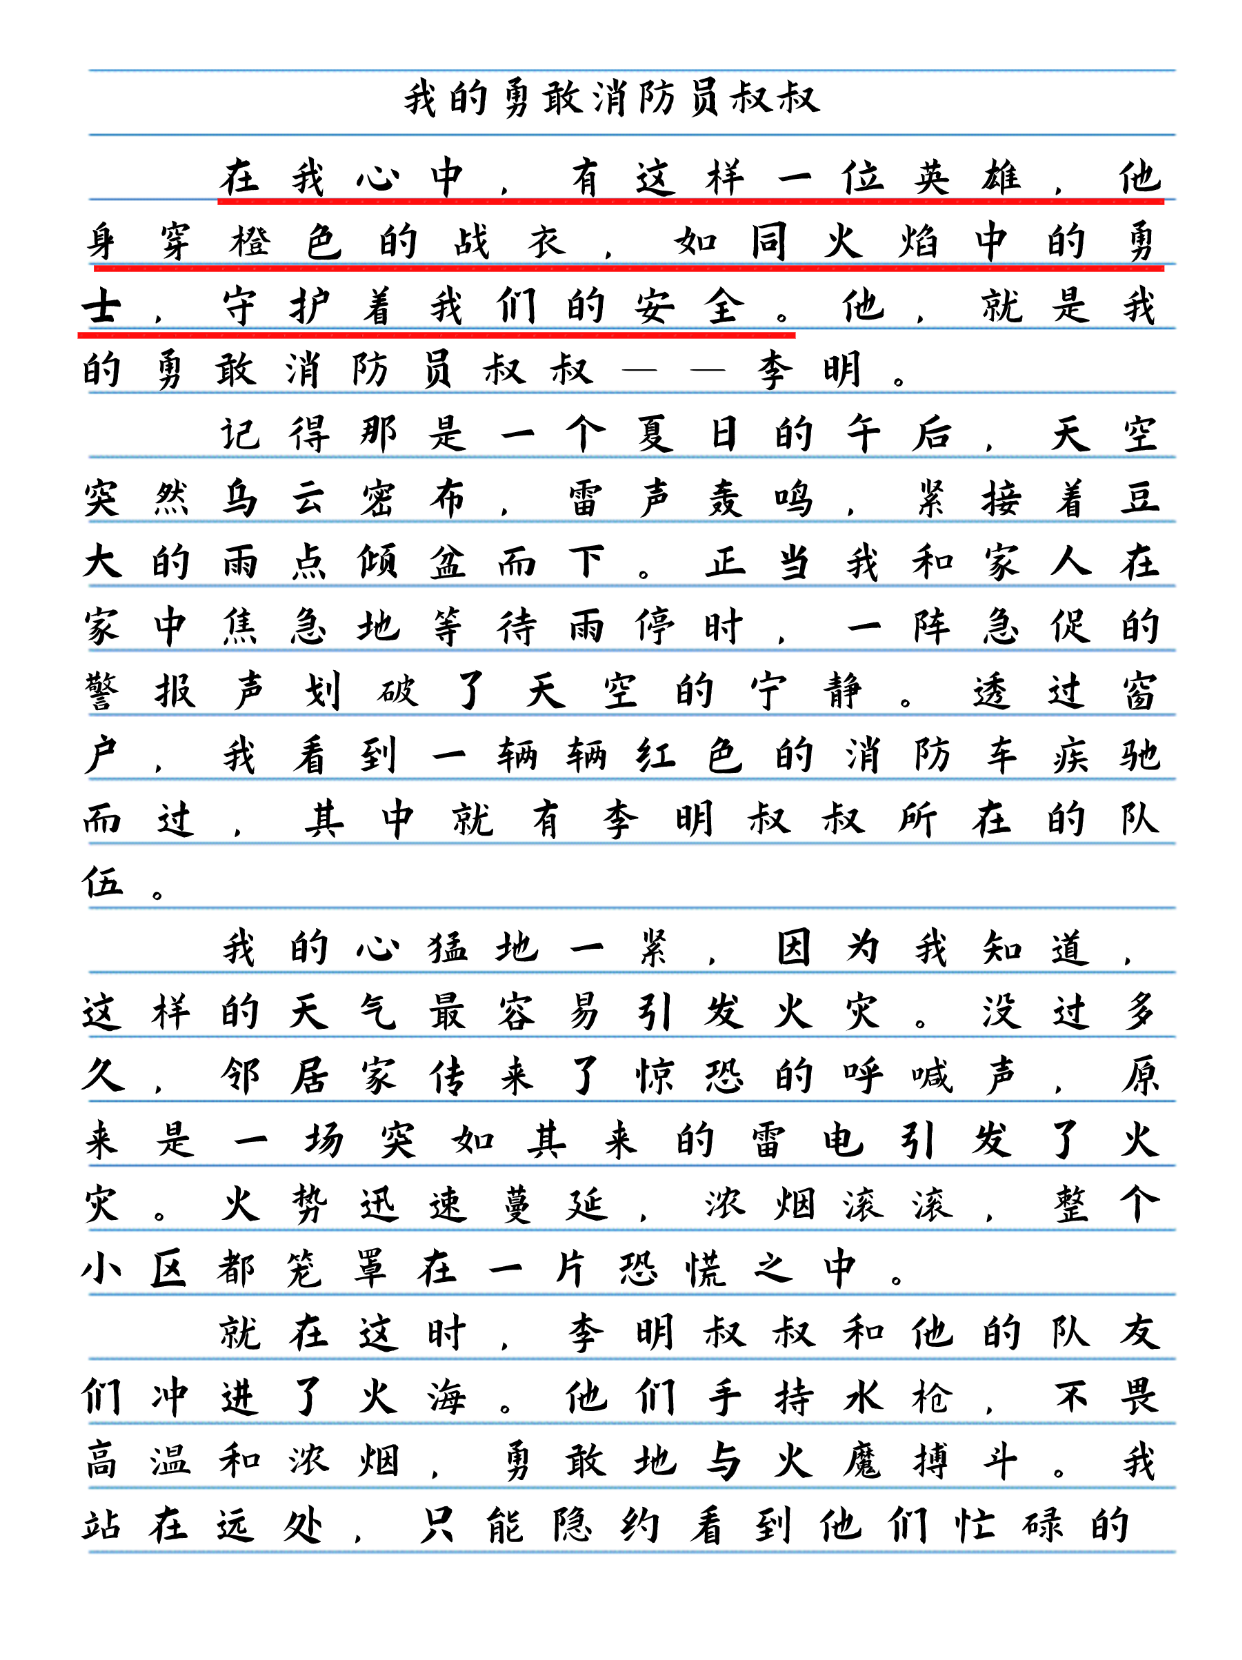 我的勇敢消防员叔叔
在我心中，有这样一位英雄，他
身穿橙色的战衣，如同火焰中的勇
士，守护着我们的安全。他，就是我
的勇敢消防员叔叔——李明。
记得那是一个夏日的午后，天空
突然乌云密布，雷声轰鸣，紧接着豆
大的雨点倾盆而下。正当我和家人在
家中焦急地等待雨停时，一阵急促的
警报声划破了天空的宁静。透过窗
户，我看到一辆辆红色的消防车疾驰
而过，其中就有李明叔叔所在的队
伍。
我的心猛地一紧，因为我知道，
这样的天气最容易引发火灾。没过多
久，邻居家传来了惊恐的呼喊声，原
来是一场突如其来的雷电引发了火
灾。火势迅速蔓延，浓烟滚滚，整个
小区都笼罩在一片恐慌之中。
就在这时，李明叔叔和他的队友
们冲进了火海。他们手持水枪，不畏
高温和浓烟，勇敢地与火魔搏斗。我
站在远处，只能隐约看到他们忙碌的